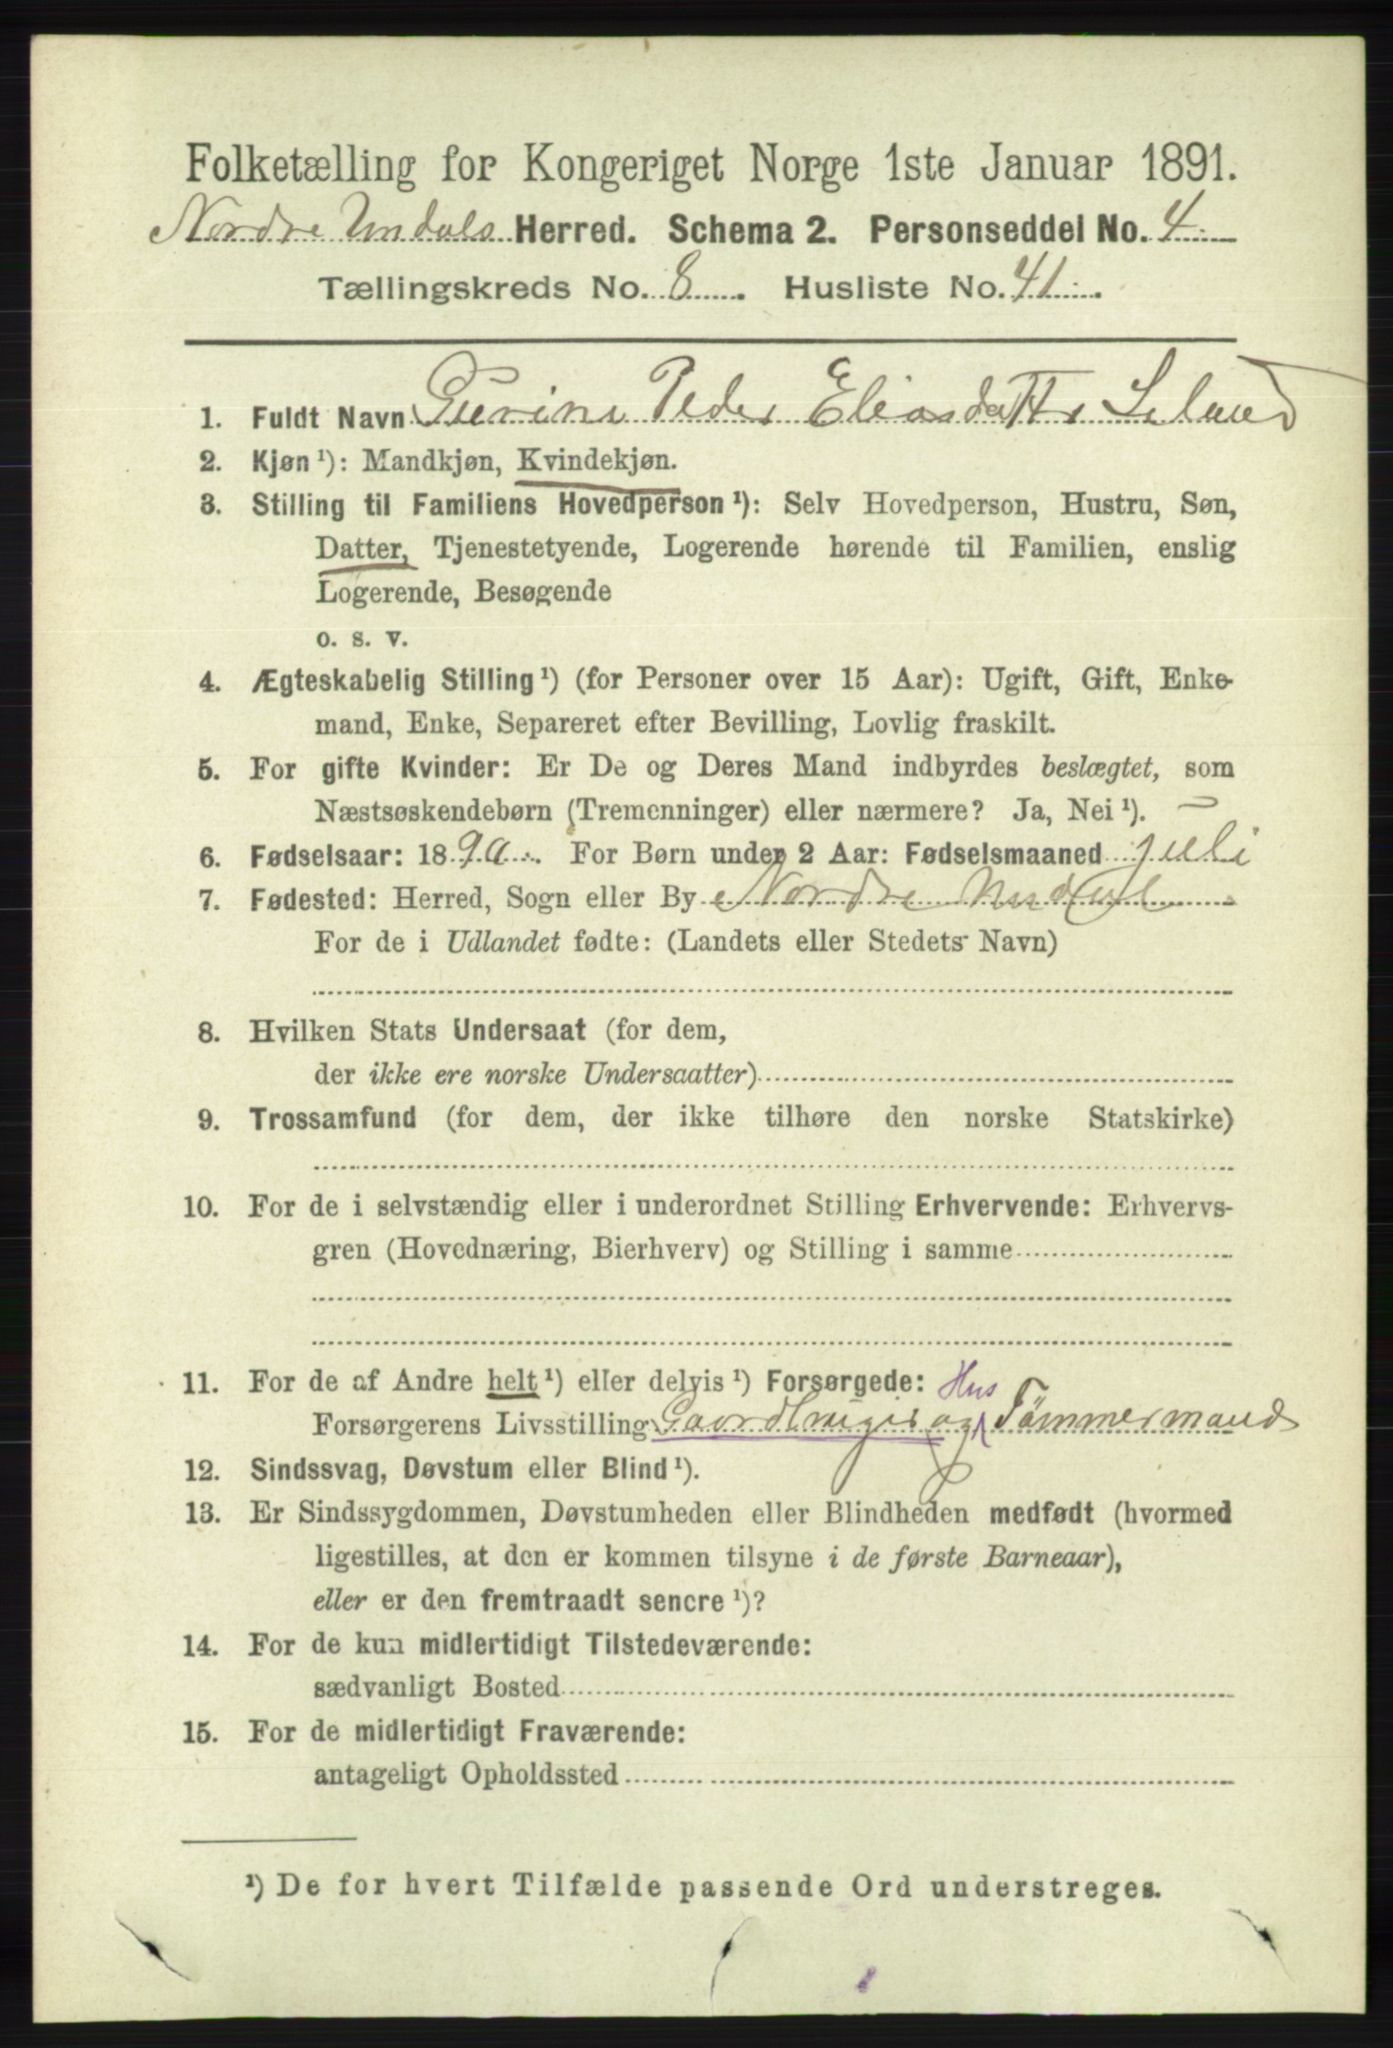 Folketælling for Kongeriget Norge 1ste Januar 1891.
Nordre Undals Herred. Schema 2. Personseddel No. 4
Tællingskreds No. 8. Husliste No. 41.
1. Fuldt Navn Gurine Peder Eliasdatter
2. Kjøn ¹): Mandkjøn, Kvindekjøn.
3. Stilling til Familiens Hovedperson ¹): Selv Hovedperson, Hustru, Søn,
Datter, Tjenestetyende, Logerende hørende til Familien, enslig
Logerende, Besøgende
o. s. v.
4. Ægteskabelig Stilling ¹) (for Personer over 15 Aar): Ugift, Gift, Enke-
mand, Enke, Separeret efter Bevilling, Lovlig fraskilt.
5. For gifte Kvinder: Er De og Deres Mand indbyrdes beslægtet, som
Næstsøskendebørn (Tremenninger) eller nærmere? Ja, Nei ¹).
6. Fødselsaar: 1890. For Børn under 2 Aar: Fødselsmaaned juli
7. Fødested: Herred, Sogn eller By Nordre Undal
For de i Udlandet fødte: (Landets eller Stedets Navn)
8. Hvilken Stats Undersaat (for dem,
der ikke ere norske Undersaatter)
9. Trossamfund (for dem, der ikke tilhøre den norske Statskirke)
10. For de i selvstændig eller i underordnet Stilling Erhvervende: Erhvervs-
gren (Hovednæring, Bierhverv) og Stilling i samme
11. For de af Andre helt ¹) eller delvis ¹) Forsørgede: Hus
Forsørgerens Livsstilling Gaardbruger og Tømmermand
12. Sindssvag, Døvstum eller Blind ¹).
13. Er Sindssygdommen, Døvstumheden eller Blindheden medfødt (hvormed
ligestilles, at den er kommen tilsyne i de første Barneaar),
eller er den fremtraadt senere ¹)?
14. For de kun midlertidigt Tilstedeværende:
sædvanligt Bosted
15. For de midlertidigt Fraværende:
antageligt Opholdssted
¹) De for hvert Tilfælde passende Ord understreges.